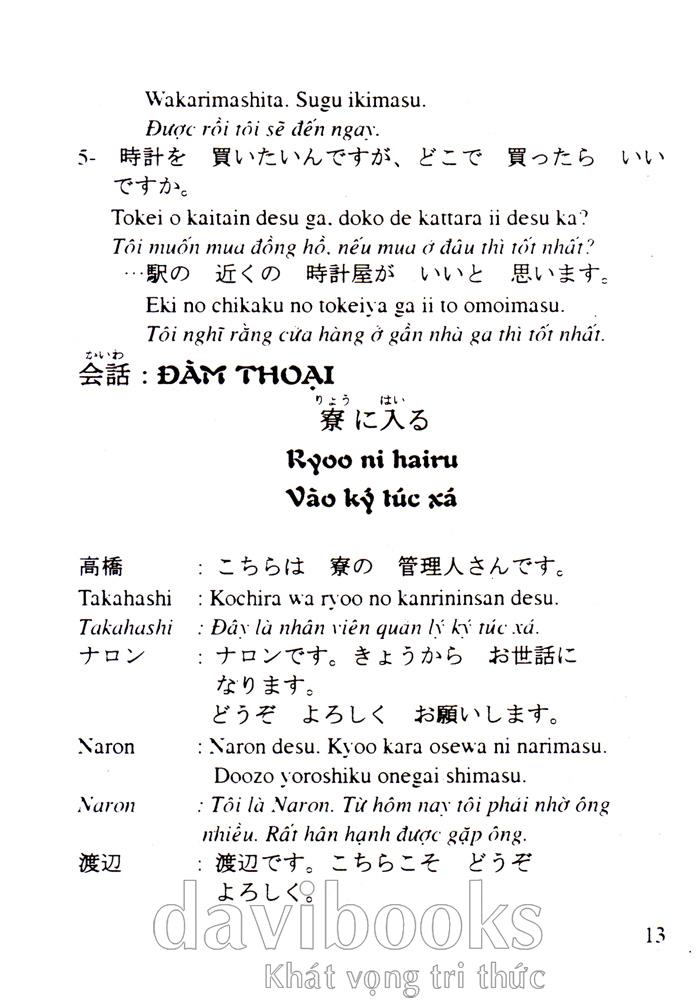 Wakarimashita. Sugu ikimasu.
Được rồi tôi sẽ đến ngay.
5- 時計を 買いたいんですが、どこで 買ったら いい
ですか。
Tokei o kaitain desu ga. doko de kattara ii desu ka?
Tôi muốn mua đồng hồ, nếu mua ở đâu thì tốt nhất?
…駅の 近くの 時計屋が いいと 思います。
Eki no chikaku no tokeiya ga ii to omoimasu.
Tôi nghĩ rằng cửa hàng ở gần nhà ga thì tốt nhất.
かいわ
会話 : ĐÀM THOẠI
りょう はい
寮に入る
Ryoo ni hairu
Vào ký túc xá
高橋 : こちらは 寮の 管理人さんです。
Takahashi : Kochira wa ryoo no kanrininsan desu.
Takahashi : Đây là nhân viên quản lý ký túc xá.
ナロン : ナロンです。きょうから お世話に
なります。
どうぞ よろしく お願いします。
Naron : Naron desu. Kyoo kara osewa ni narimasu.
Doozo yoroshiku onegai shimasu.
Naron : Tôi là Naron. Từ hôm nay tôi phải nhờ ông
nhiều. Rất hân hạnh được gặp ông.
渡辺 : 渡辺です。こちらこそ どうぞ
よろしく。
davibooks
Khát vọng tri thức
13